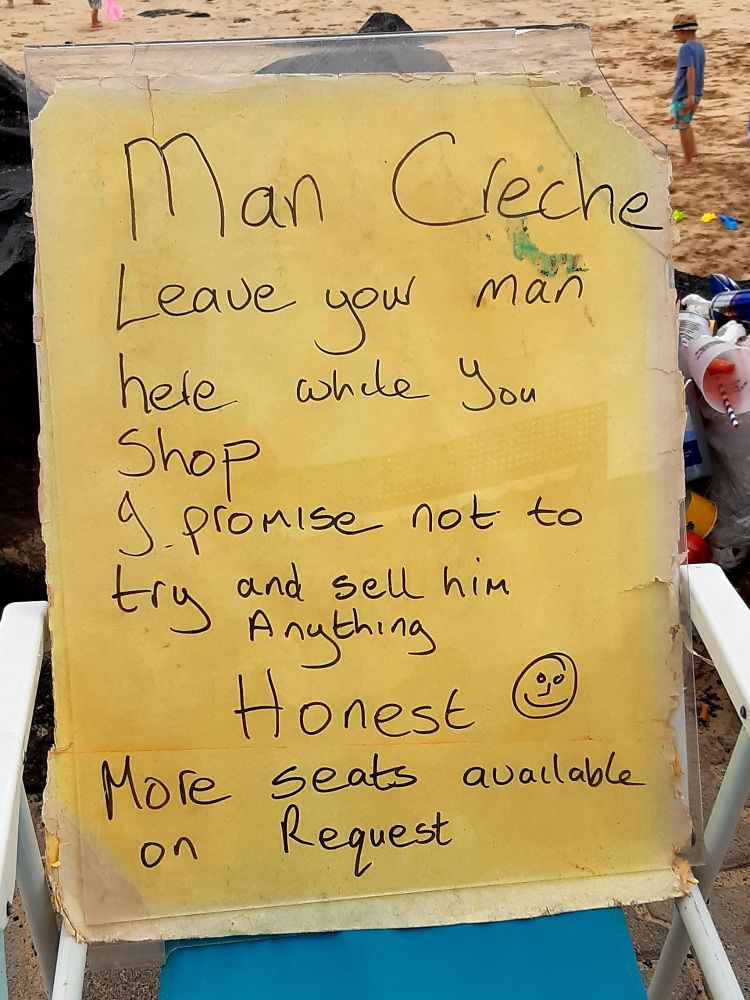 Man Creche
Leave your man
here while you
Shop
I promise not to
try and sell him
Anything
Honest
More seats available
on Request